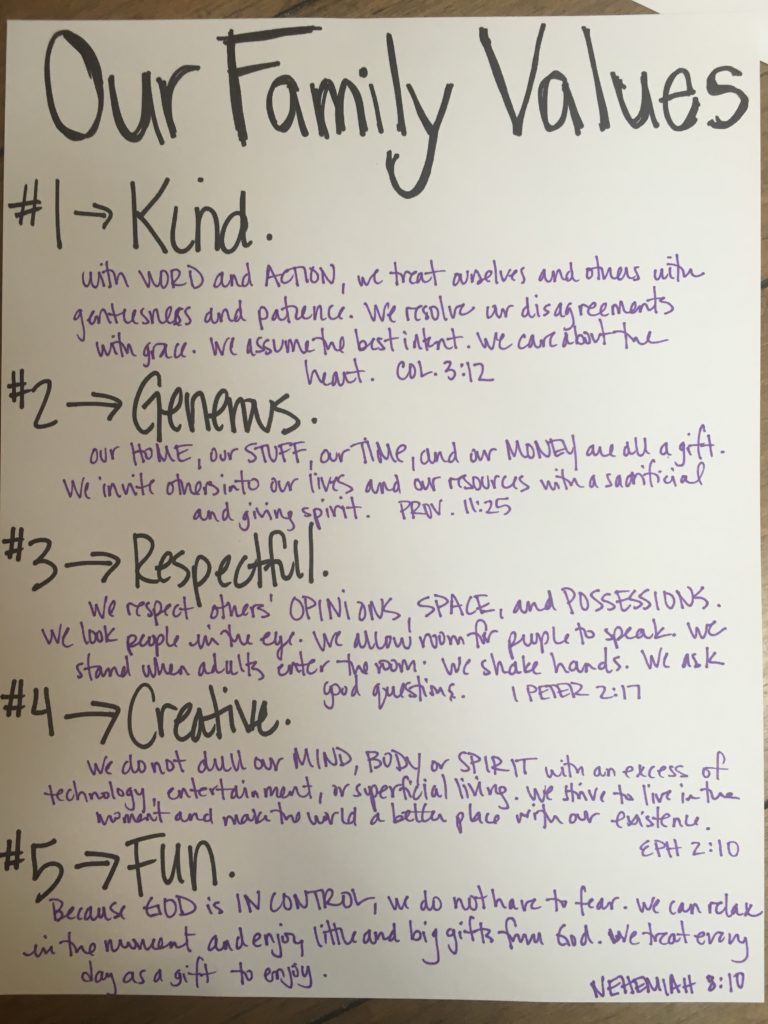 Our Family Values
#1 → Kind.
with WORD and ACTION, we treat ourselves and others with
gentleness and patience. We resolve our disagreements
with grace. We assume the best intent. We care about the
heart. COL. 3:12
#2 → Generous.
our HOME, our STUFF, our TIME, and our MONEY are all a gift.
We invite others into our lives and our resources with a sacrificial
and giving spirit. PROV. 11:25
#3 → Respectful.
We respect others' OPINIONS, SPACE, and POSSESSIONS.
We look people in the eye. We allow room for people to speak. We
stand when adults enter the room. We shake hands. We ask
good questions. 1 PETER 2:17
#4 → Creative.
We do not dull our MIND, BODY or SPIRIT with an excess of
technology, entertainment, or superficial living. We strive to live in the
moment and make the world a better place with our existence.
EPH 2:10
#5 → Fun.
Because GOD is IN CONTROL, we do not have to fear. We can relax
in the moment and enjoy little and big gifts from God. We treat every
day as a gift to enjoy.
NEHEMIAH 8:10